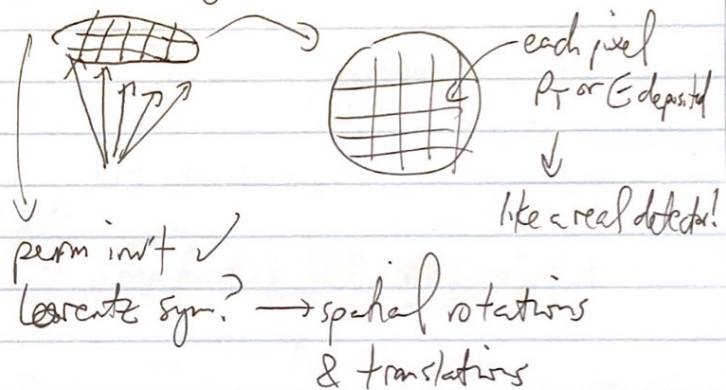 each pixel
PT or E deposited
like a real detector!
perm inv't ✓
Lorentz sym? → spatial rotations
& translations